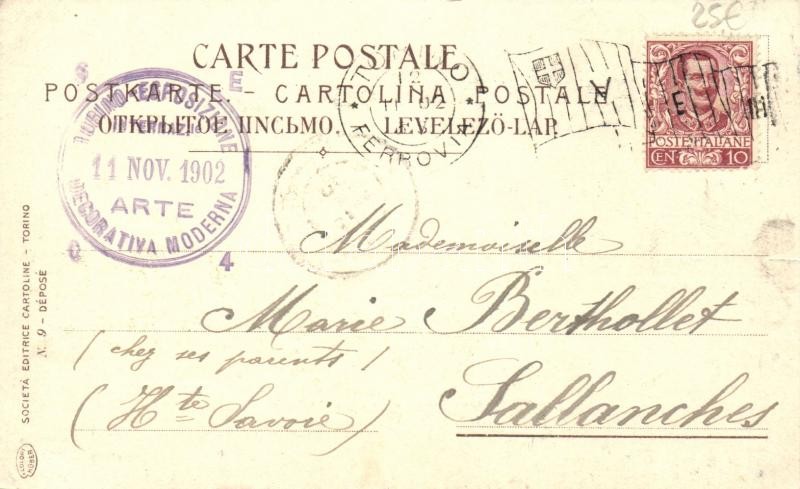 25€
CARTE POSTALE
POSTKARTE. - CARTOLINA POSTALE
ОТКРЫТОЕ ПИСЬМО. LEVELEZÖ-LAP.
S E
TORINO ESPOSIZIONE
11 NOV. 1902
ARTE
DECORATIVA MODERNA
4
12
FERROVIA
V E III
POSTE ITALIANE
CEN 10
Mademoiselle
Marie Berthollet
(chez ses parents)
(Hte Savoie) Sallanches
SOCIETÀ EDITRICE CARTOLINE - TORINO
N. 9 - DÉPOSÉ